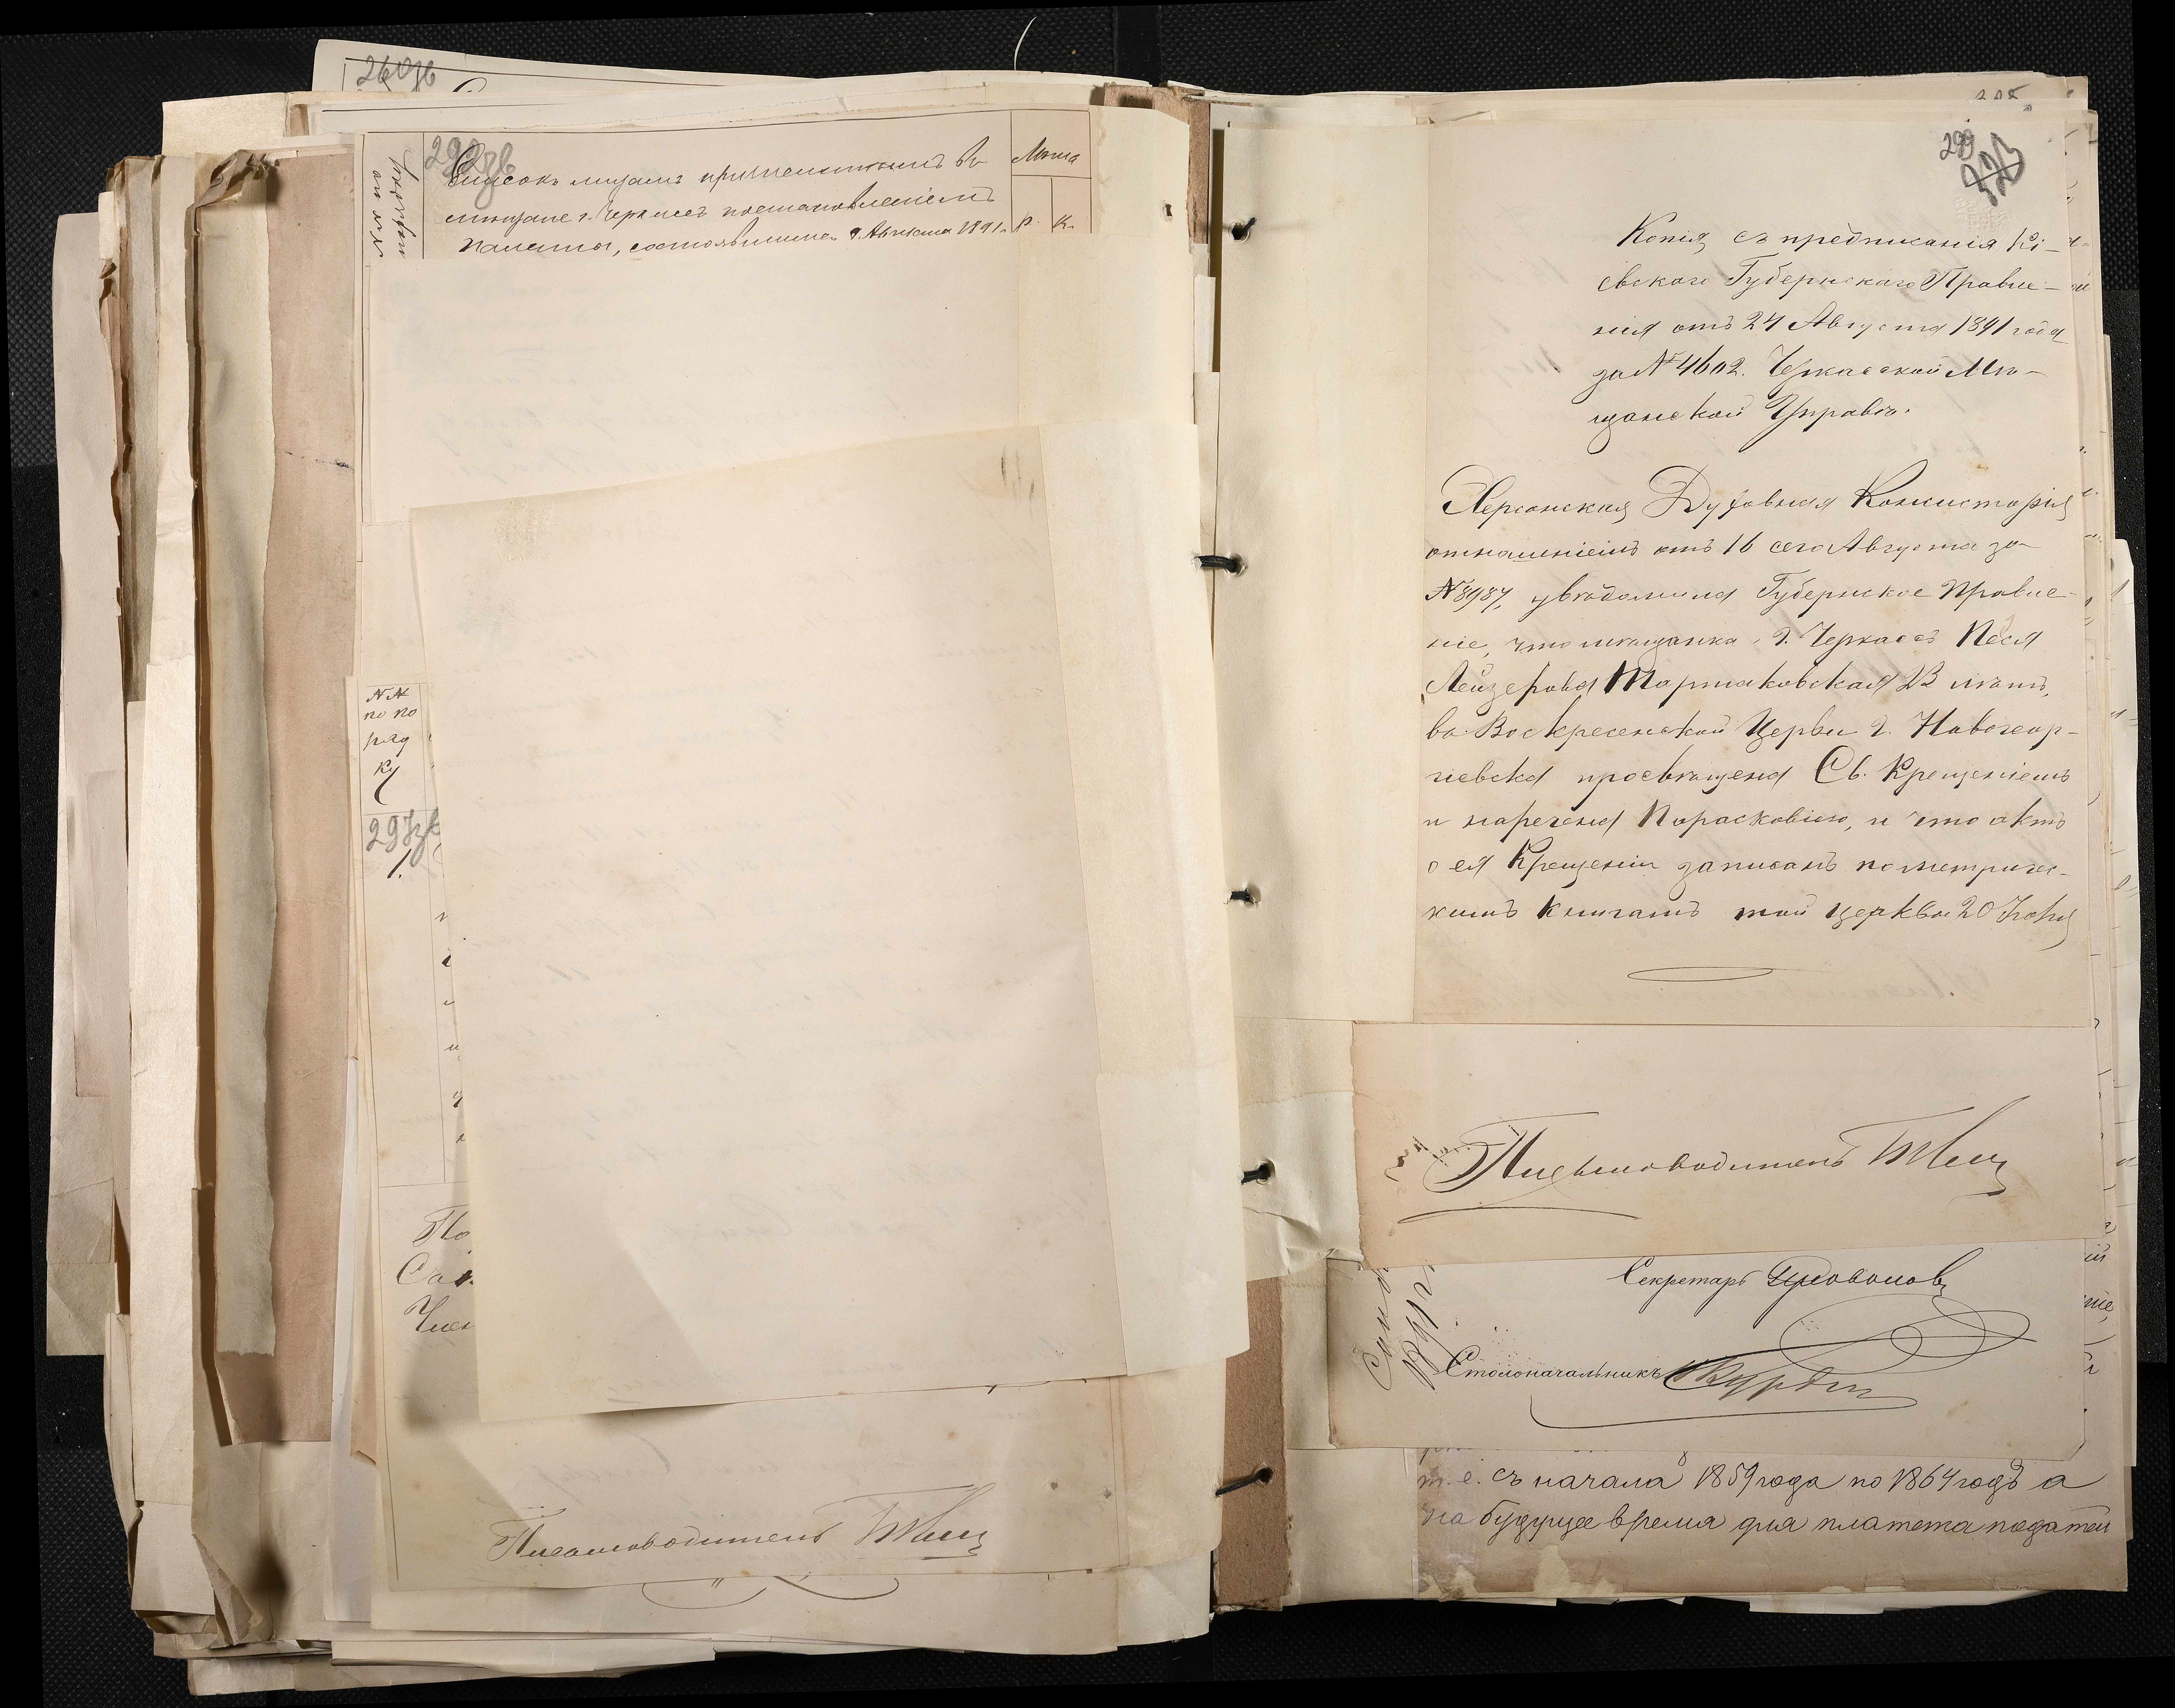 260зв
№№ по порядку
298зв
Списокъ лицамъ причисленнымъ въ
мѣщане г. Черкасъ постановленіемъ
Палаты, состоявшимся 9 Августа 1891 г.
р. к.
№№
по по
ряд
ку
297зв
1.
По
Сек
Член
Письмоводитель
299
Копія съ предписанія Кі-
евскаго Губернскаго Правле-
нія отъ 24 Августа 1891 года
за № 4602. Черкасской Мѣ-
щанской Управѣ.
Херсонская Духовная Консисторія
отношеніемъ отъ 16 сего Августа за
№ 8987, увѣдомила Губернское Правле-
ніе, что мѣщанка г. Черкасъ Песя
Лейзерова Тартаковская 23 лѣтъ,
въ Воскресенской Церви г. Новогеор-
гіевска просвѣщена Св. Крещеніемъ
и наречена Парасковіею, и что актъ
о ея Крещеніи записанъ по метричес-
кимъ книгамъ той церкви 20 Іюня
Письмоводитель
Секретарь
Столоначальникъ
т. е. съ начала 1859 года по 1864 годъ а
на будущее время для платежа податей